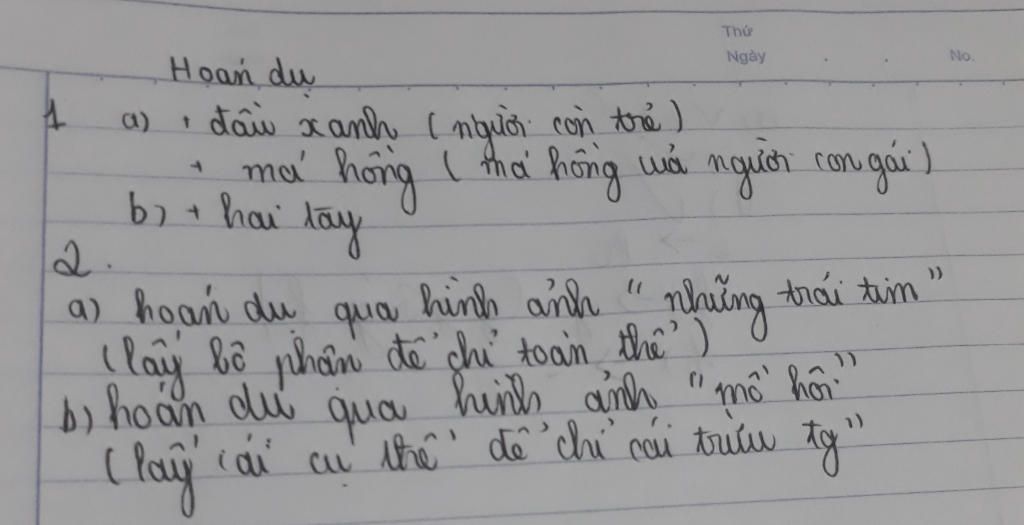 Thứ
Ngày . . No.
Hoán dụ
1 a) + đầu xanh (người còn trẻ)
+ má hồng (má hồng của người con gái)
b) + hai tay
2.
a) hoán dụ qua hình ảnh "những trái tim"
(lấy bộ phận để chỉ toàn thể)
b) hoán dụ qua hình ảnh "mồ hôi"
(lấy cái cụ thể để chỉ cái trừu tg"